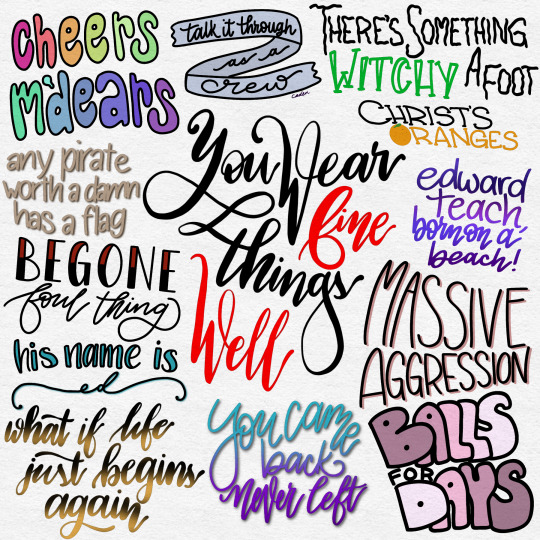 cheers
m'dears
talk it through
as a
crew
THERE'S SOMETHING
WITCHY AFOOT
CHRIST'S
ORANGES
any pirate
worth a damn
has a flag
You Wear
fine
things
Well
edward
teach,
born on a
beach!
BEGONE
foul thing
his name is
ed
MASSIVE
AGGRESSION
what if life
just begins
again
You came
back
never left
BALLS
FOR
DAYS